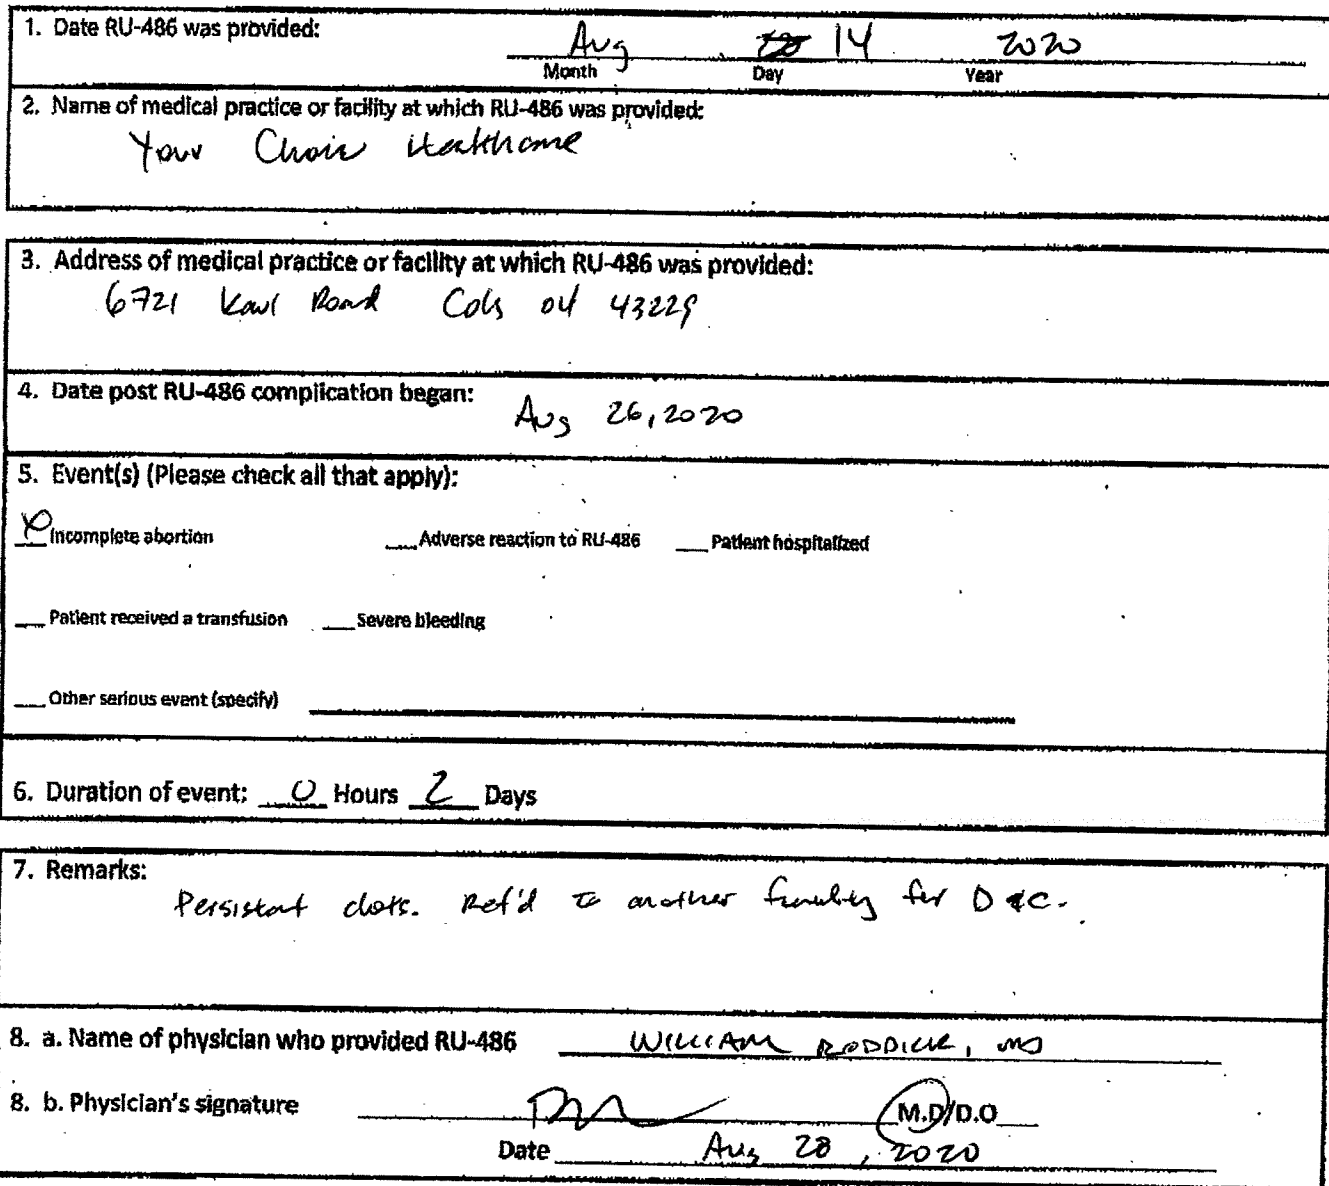 1. Date RU-486 was provided:
Aug 14 2020
Month Day Year
2. Name of medical practice or facility at which RU-486 was provided:
Your Choice Healthcare
3. Address of medical practice or facility at which RU-486 was provided:
6721 Karl Road Cols OH 43229
4. Date post RU-486 complication began:
Aug 26, 2020
5. Event(s) (Please check all that apply):
Incomplete abortion Adverse reaction to RU-486 Patient hospitalized
Patient received a transfusion Severe bleeding
Other serious event (specify)
6. Duration of event: 0 Hours 2 Days
7. Remarks:
Persistent clots. Ref'd to another facility for D&C.
8. a. Name of physician who provided RU-486 WILLIAM RODDICK, MD
8. b. Physician's signature M.D/D.O
Date Aug 28, 2020